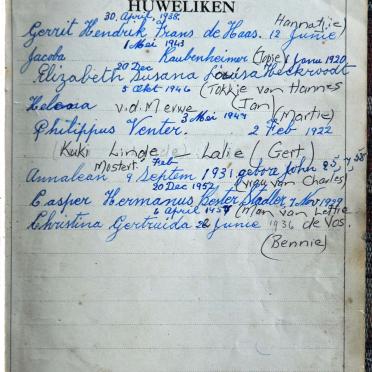 HUWELIKEN
30. April, 1938.
Gerrit Hendrik Frans de Haas. 12 Junie (Hannatjie)
1 Mei 1943
Jacoba Raubenheimer (Topie) 1 Junu 1920
20 Dec
Elizabeth Susana Louisa Heckroodt
5 Okt 1946 (Tokkie van Hannes
Helena v.d. Merwe (Jan)
3 Mei 1947 (Martie)
Philippus Venter. 2 Feb 1922
(Kuki Linde — Lalie (Gert)
Mostert. Feb
Annalean 9 Septem 1931 gebore John 25,
20 Dec 1952 (vrou van Charles)
Casper Hermanus Bester Stadler, 7 Nov 1929
6 April 1957 (Man van Lettie
Christina Gertruida 22 Junie 1936 de Vos.
(Bennie)